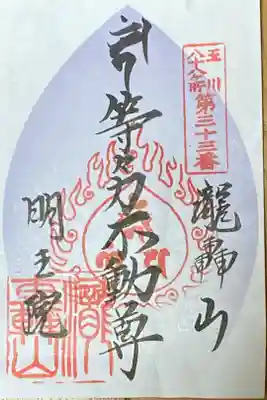 玉川
八十八ヶ所
第三十三番
瀧轟山
等々力不動尊
明王院